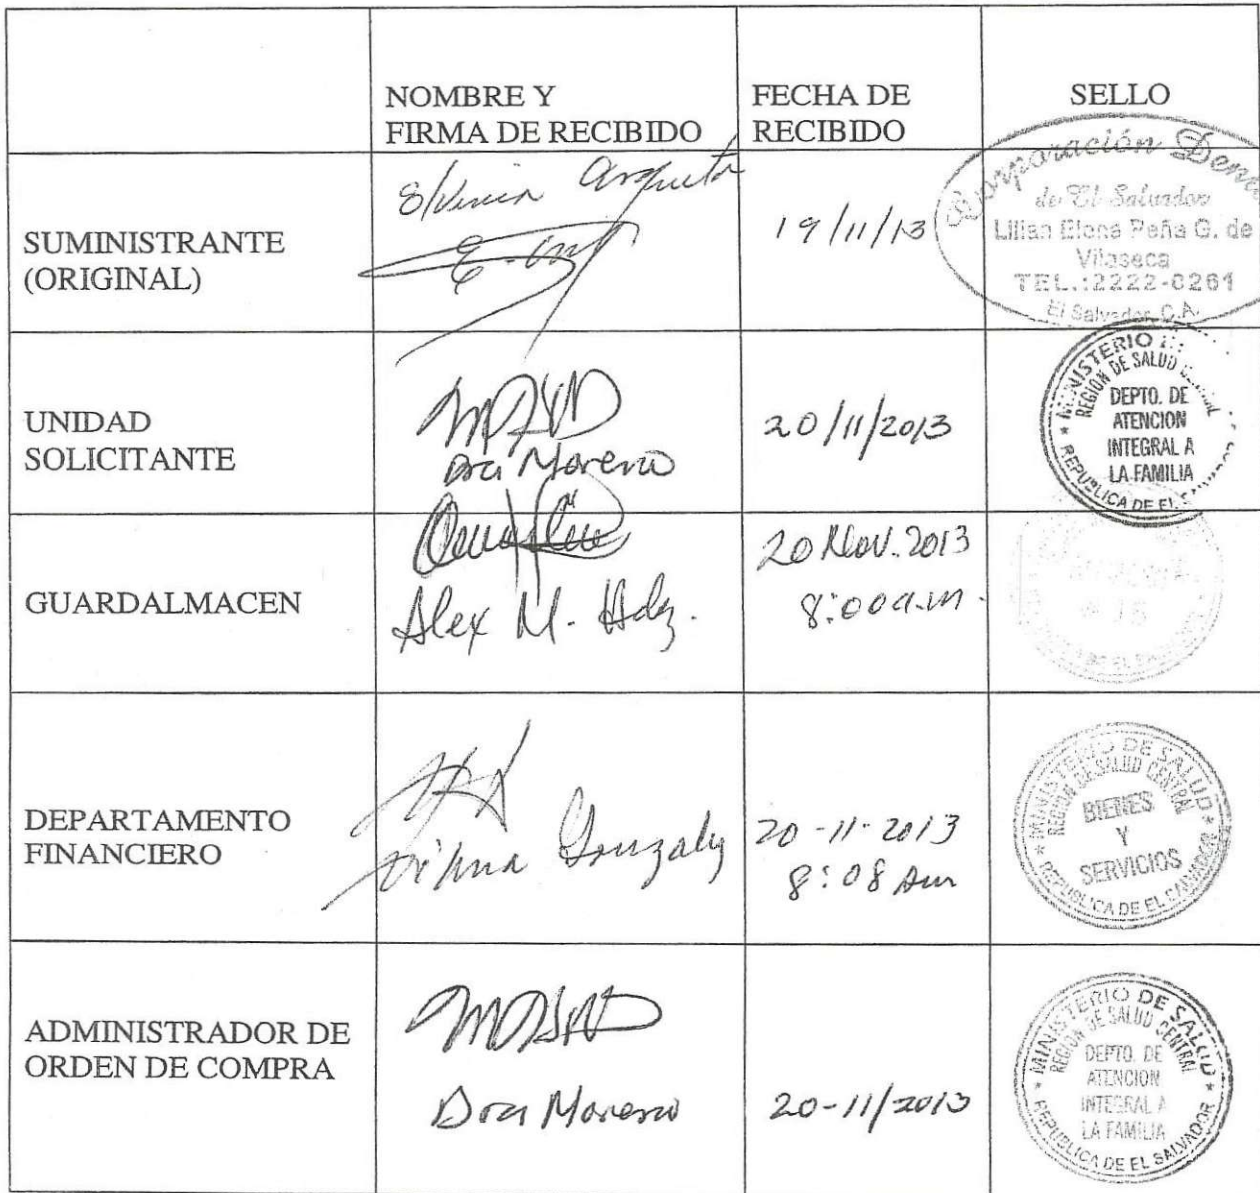 NOMBRE Y
FIRMA DE RECIBIDO
FECHA DE
RECIBIDO
SELLO
SUMINISTRANTE
(ORIGINAL)
Argueta
19/11/13
Corporación
de El Salvador
Lilian Elena Peña G. de
Vilaseca
TEL.:2222-0261
El Salvador, C.A.
UNIDAD
SOLICITANTE
Dra Moreno
20/11/2013
MINISTERIO
REGION DE SALUD
DEPTO. DE
ATENCION
INTEGRAL A
LA FAMILIA
REPUBLICA DE EL
GUARDALMACEN
Alex M. Hdz.
20 Nov. 2013
8:00 a.m.
DEPARTAMENTO
FINANCIERO
Vilma Gonzalez
20-11-2013
8:08 am
MINISTERIO DE SALUD
REGION DE SALUD CENTRAL
BIENES
Y
SERVICIOS
REPUBLICA DE EL SALVADOR
ADMINISTRADOR DE
ORDEN DE COMPRA
Dra Moreno
20-11/2013
MINISTERIO DE SALUD
REGION DE SALUD CENTRAL
DEPTO. DE
ATENCION
INTEGRAL A
LA FAMILIA
REPUBLICA DE EL SALVADOR